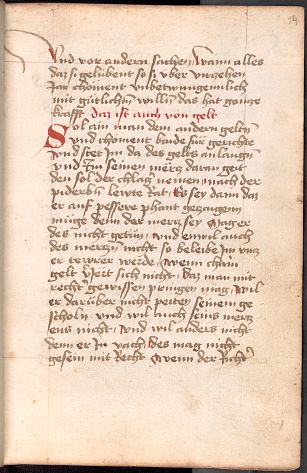 14.
Vnd vor andern sachen Wann alles
daz si gelübent so si vber vierzehen
Jar choment vnbetwungennlich
mit gütlichem willen das hat gancze
krafft daz ist auch von gelt
Sol ain man dem andern gelten
vnd choment baide für gerichte
vnd stet Im da des gelts an laugen
vnd In seinen mercz daran geit
den sol der chlager nemen nach der
piderben lewte Rat Es sey dann daz
er auf pessere phant
müge denn der mercz sey Mag er
des nicht getün vnd en wil auch
des mercz nicht so beleibe Im vncz
er tewrer werde wenn chain
gelt leit sich nicht daz man mit
rechter gewissen pringen mag wil
er darüber nicht peiten seinem ge
scholn vnd wil auch seins mercz
ens nicht vnd wil anders nicht
denn er In vach des mag nicht
gesein mit Recht Wenn der Richter